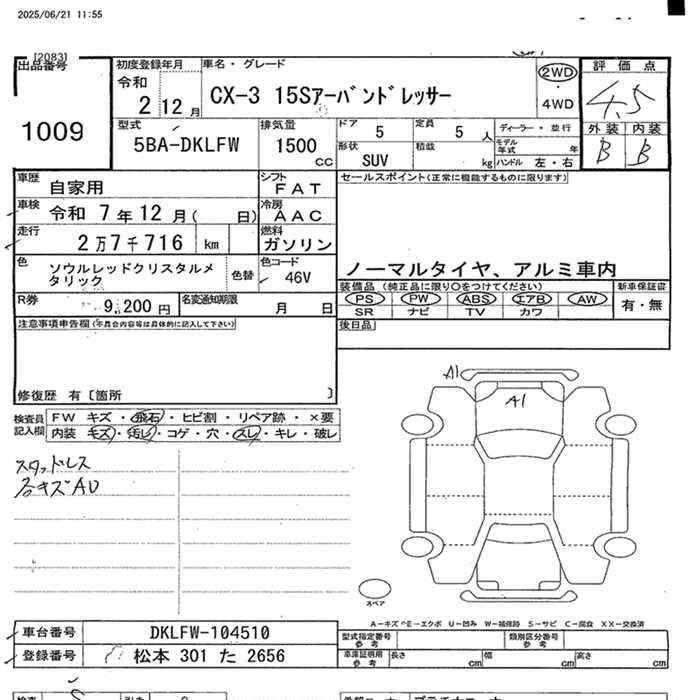 2025/06/21 11:55
[2083]
出品番号 初度登録年月 車名・グレード 評価点
1009 令和 2 12月 CX-3 15Sアーバンドレッサー 2WD ・ 4WD 4.5
外装 内装
B B
型式 排気量 ドア 5 定員 5 人 ディーラー・並行
5BA-DKLFW 1500 cc 形状 SUV 積載 kg モデル年式 年
ハンドル 左・右
車歴 自家用 シフト FAT セールスポイント(正常に機能するものに限ります)
車検 令和 7年12月( 日) 冷房 AAC
走行 2万7千716 km 燃料 ガソリン
ノーマルタイヤ、アルミ車内
色 ソウルレッドクリスタルメタリック 色替 色コード 46V
装備品(純正品に限り○をつけてください) 新車保証書
PS PW ABS エアB AW 有・無
SR ナビ TV カワ
R券 9,200円 名変通知期限 月 日
後日品
注意事項申告欄(不具合内容等は具体的に記入して下さい)
修復歴 有〔箇所 〕
検査員記入欄 FW キズ・飛石・ヒビ割・リペア跡・×要
内装 キズ・汚レ・コゲ・穴・スレ・キレ・破レ
スタッドレス
A1
A1
スペア
A-キズ E-エクボ U-凹み W-補修跡 S-サビ C-腐食 XX-交換済
車台番号 DKLFW-104510 型式指定番号 参考 類別区分番号 参考
登録番号 松本 301 た 2656 車庫証明用 参考 長さ cm 幅 cm 高さ cm